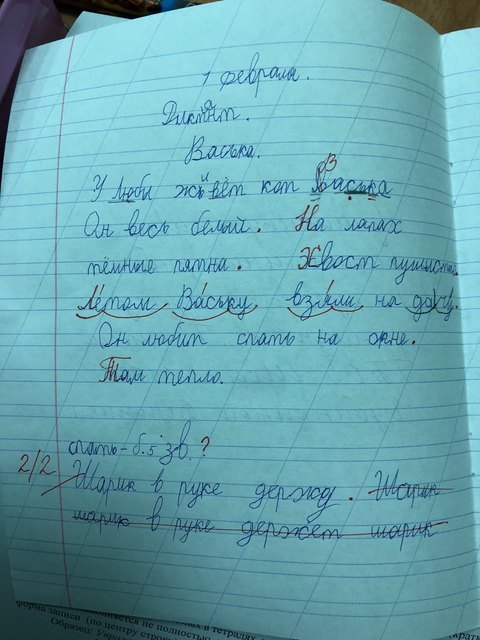 1 февраля.
Диктант.
Васька.
У Любы живёт кот Васька
Он весь белый. На лапах
тёмные пятна. Хвост пушистый.
Летом Ваську взяли на дачу.
Он любит спать на окне.
Там тепло.
спать - б. 5 зв. ?
2/2
Шарик в руке держу. Шарик
шарик в руке держет шарик